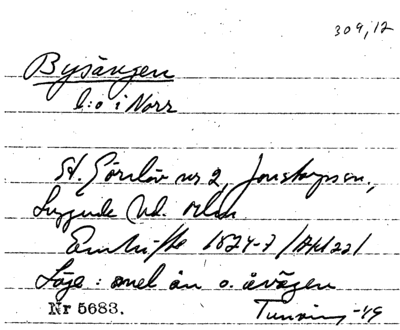 309,12
Bysängen
l:o i Norr
St. Görslöv nr 2, Jonstorps sn,
Luggude hd.
Enskifte 1824-7 /Akt 22/
Läge: mel ån o. åvägen
Nr 5683. Tuneving -49